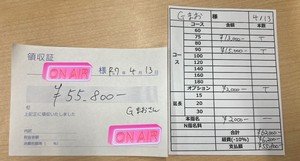 領収証
様 R7年 4月 13日
ON AIR
¥55,800-
但
上記正に領収いたしました
Gまおさん
内訳
ON AIR
Gまお 様 4/13
コース 金額 本数
60
75 ¥13,000- T
90 ¥15,000- T
100
120
160
180
オプション ¥2,000- T
15
延長 20
30
本指名 ¥2,000-
N指名料
合計
雑費(-10%)
支払額